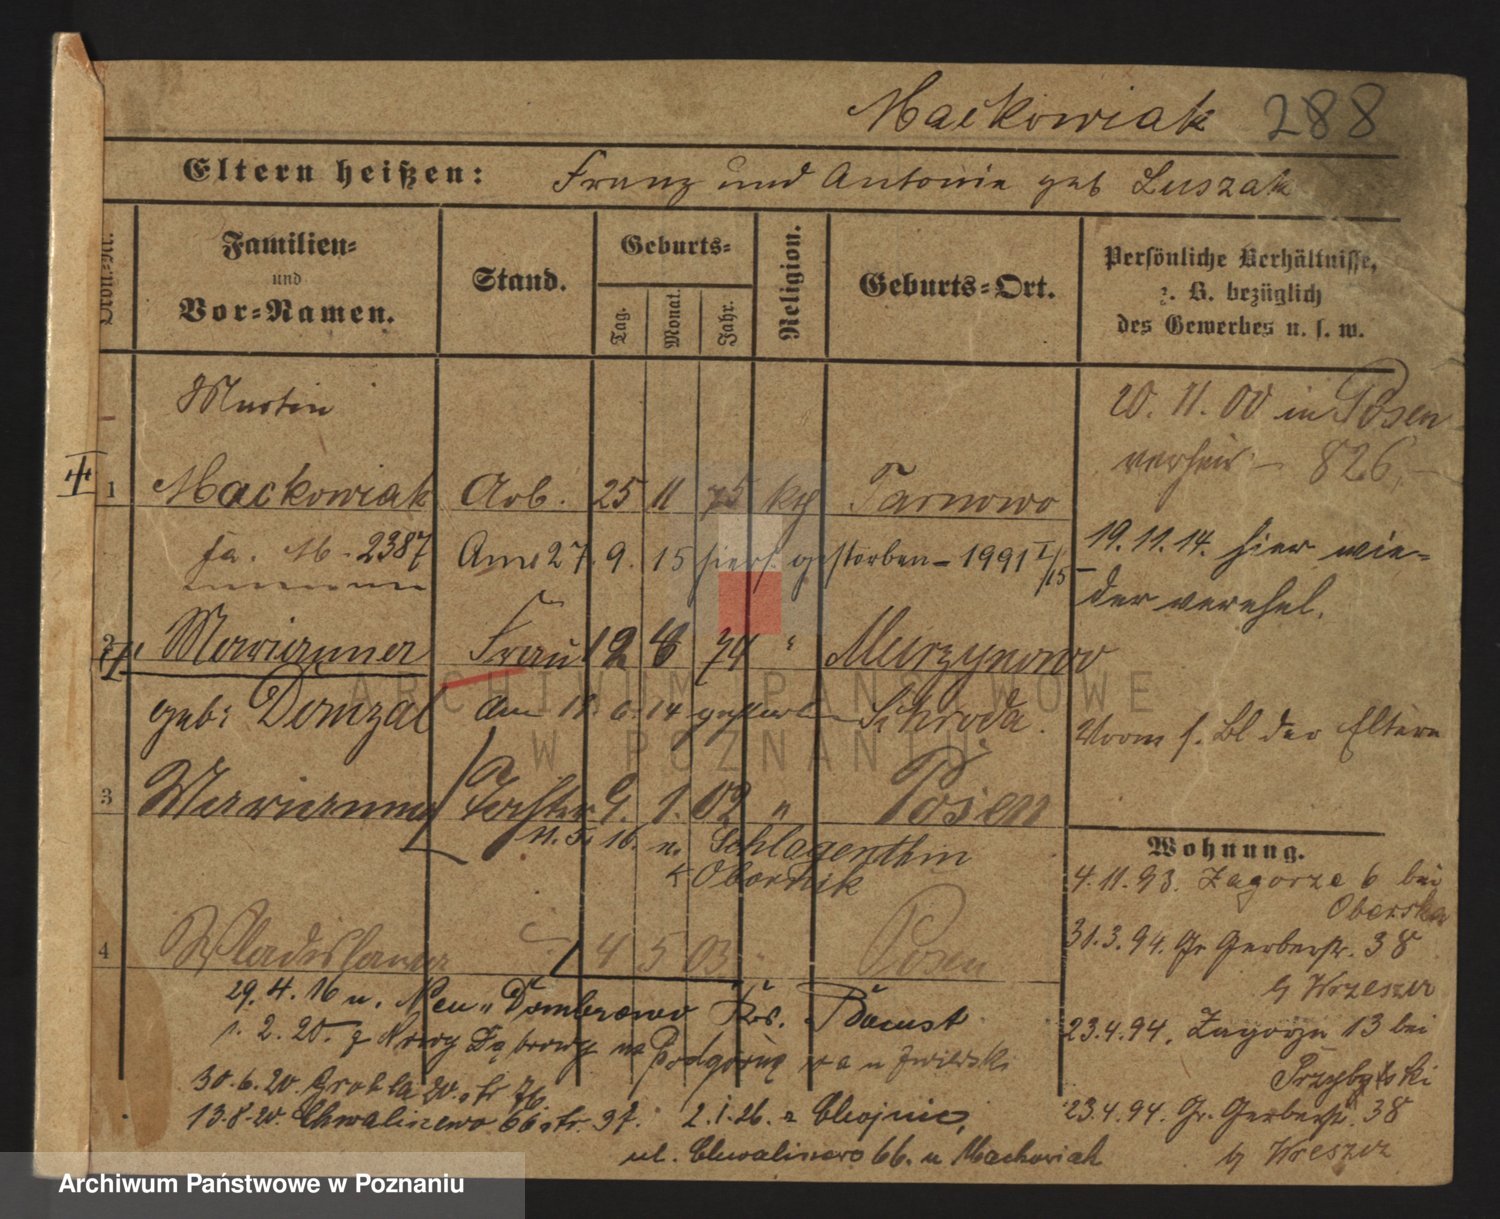 Maćkowiak 288
Eltern heißen: Franz und Antonie geb Luszak
Kont.-Nr.
Familien-
und
Vor-Namen.
Stand.
Geburts-
Tag. Monat. Jahr.
Religion.
Geburts-Ort.
Persönliche Verhältnisse,
z. B. bezüglich
des Gewerbes u. s. w.
Martin
20. 11. 00 in Posen
verheir - 826,-
1 Mackowiak Arb. 25 11 75 kth Tarnowo
fa. M - 2387 Am 27. 9. 15 hier gestorben - 1991 I/15
19. 11. 14. hier wie-
der verehel.
2 Marianna Frau 12 8 74 " Murzynowo
geb: Domzal am 18. 6. 14 gestorben Schroda.
Vorm s. Bl der Eltern
3 Marianna Tochter 9. 1. 02 " Posen
11. 5. 16. n. Schlagenthin
K Obornik
Wohnung.
4.11.93. Zagorze 6 bei
31.3.94. Gr Gerberstr. 38
b Wrzeszcz
4 Wladislawa 4 5 03 " Posen
29. 4. 16 n. Neu-Dombrowo Krs. Bomst
1. 2. 20. z Nowy Dąbrowy na Podgórną
23.4.94. Zagorze 13 bei
Przybylski
30.6.20. Grobla 20. str 76
13.8.20. Chwaliszewo 66 str. 37. 2.1.26. z Chojnic,
23.4.94. Gr. Gerberstr. 38
ul. Chwaliszewo 66. u Mackowiak
ARCHIWUM PAŃSTWOWE
W POZNANIU
Archiwum Państwowe w Poznaniu